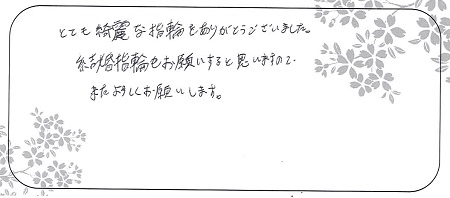 とても綺麗な指輪をありがとうございました。
結婚指輪もお願いすると思いますので
またよろしくお願いします。